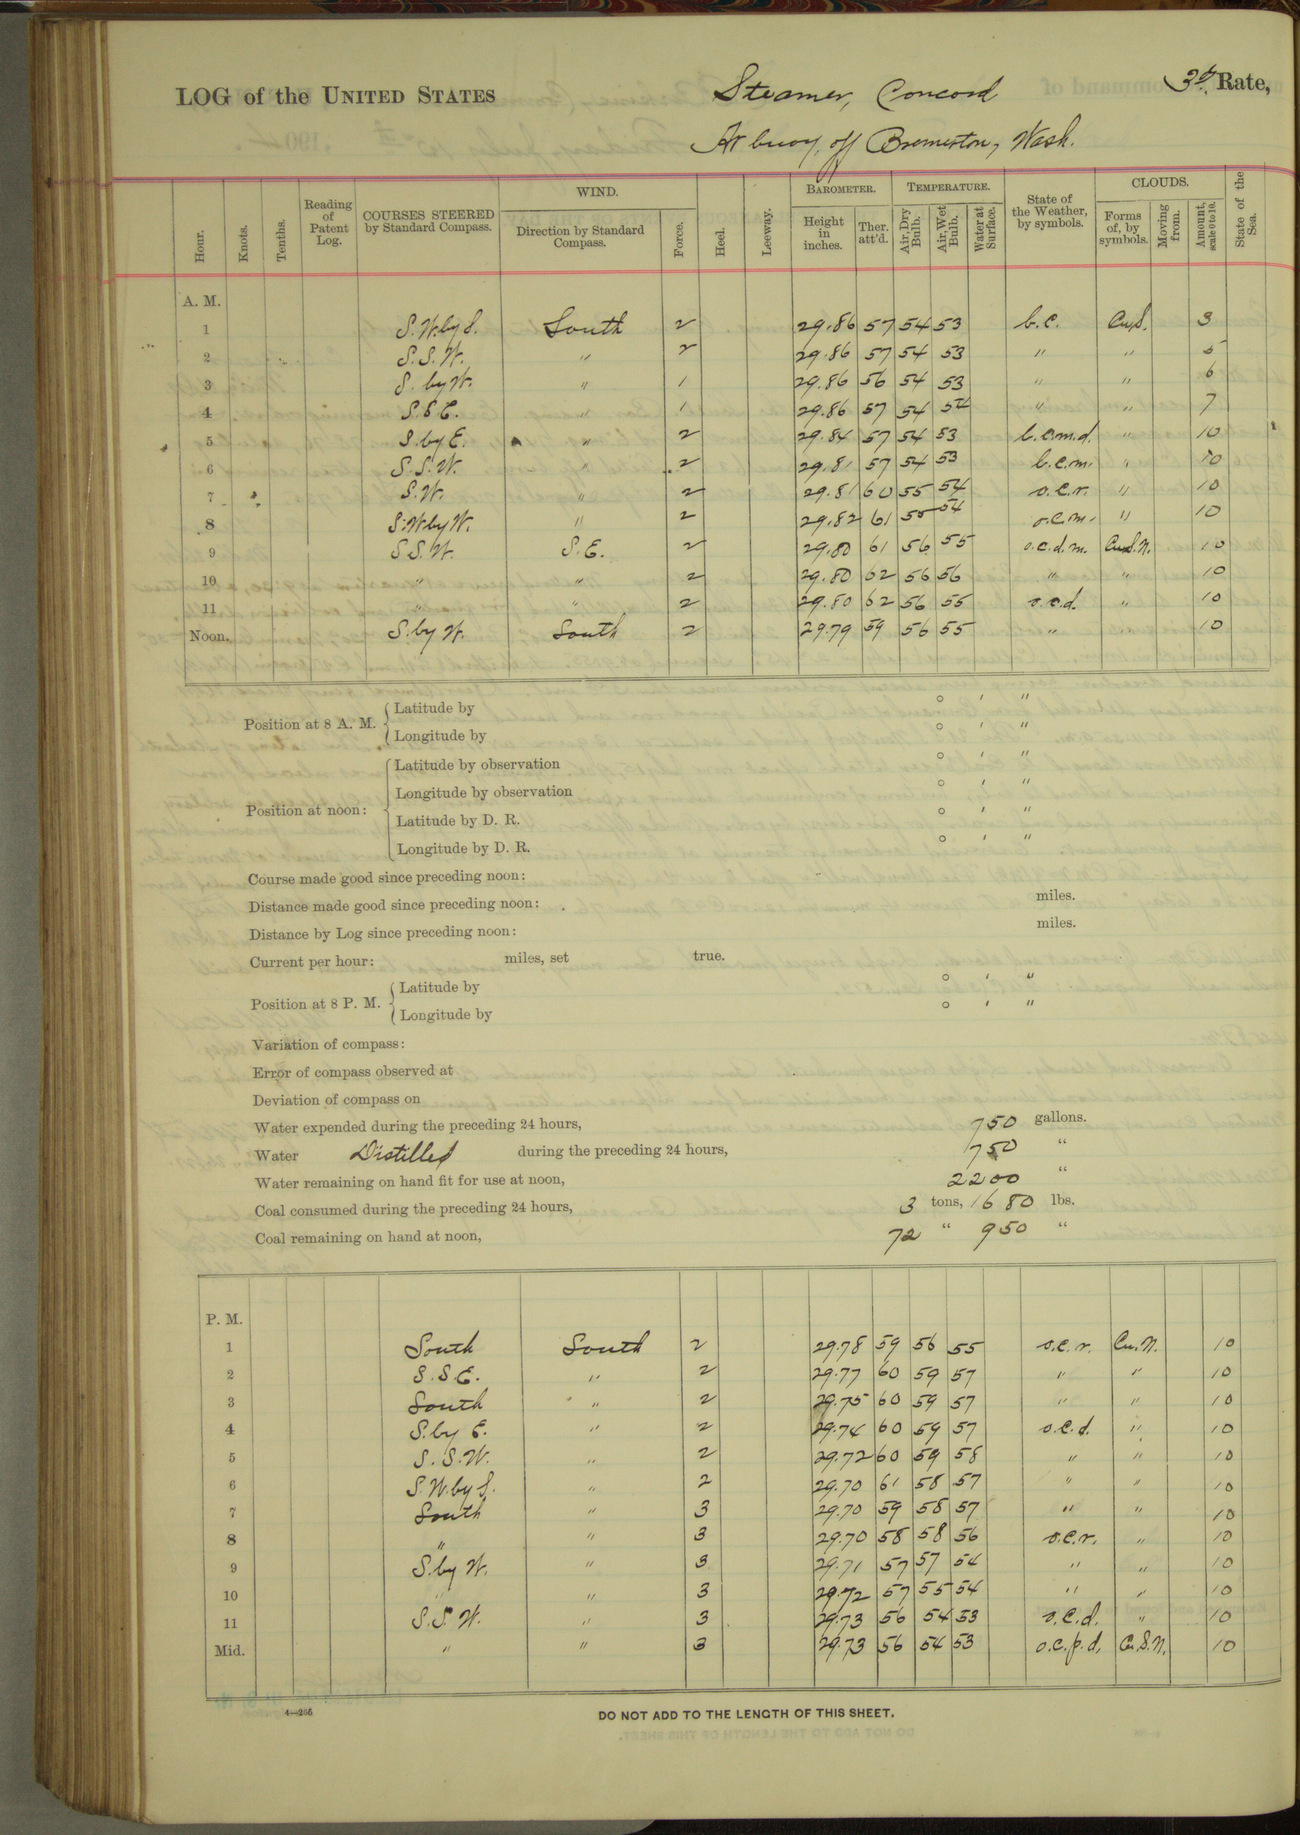 LOG of the UNITED STATES Steamer, Concord 3d Rate,
At buoy, off Bremerton, Wash.
Hour. Knots. Tenths. Reading of Patent Log. COURSES STEERED by Standard Compass. WIND. Direction by Standard Compass. Force. Heel. Leeway. BAROMETER. Height in inches. Ther. att'd. TEMPERATURE. Air, Dry Bulb. Air, Wet Bulb. Water at Surface. State of the Weather, by symbols. CLOUDS. Forms of, by symbols. Moving from. Amount, scale 0 to 10. State of the Sea.
A. M.
1 S.W.by S. South 2 29.86 57 54 53 b.c. Cu.S. 3
2 S.S.W. " 2 29.86 57 54 53 " " 5
3 S. by W. " 1 29.86 56 54 53 " " 6
4 S.S.E. " 1 29.86 57 54 54 " " 7
5 S.by E. " 2 29.84 57 54 53 b.c.m.d. " 10
6 S.S.W. " 2 29.81 57 54 53 b.c.m. " 10
7 S.W. " 2 29.81 60 55 54 o.c.r. " 10
8 S.W.by W. " 2 29.82 61 55 54 o.c.m. " 10
9 S.S.W. S.E. 2 29.80 61 56 55 o.c.d.m. Cu.S.N. 10
10 " " 2 29.80 62 56 56 " " 10
11 " " 2 29.80 62 56 55 o.c.d. " 10
Noon. S.by W. South 2 29.79 59 56 55 " " 10
Position at 8 A. M. { Latitude by ° ′ ″
Longitude by ° ′ ″
Position at noon: { Latitude by observation ° ′ ″
Longitude by observation ° ′ ″
Latitude by D. R. ° ′ ″
Longitude by D. R. ° ′ ″
Course made good since preceding noon:
Distance made good since preceding noon: miles.
Distance by Log since preceding noon: miles.
Current per hour: miles, set true.
Position at 8 P. M. { Latitude by ° ′ ″
Longitude by ° ′ ″
Variation of compass:
Error of compass observed at
Deviation of compass on
Water expended during the preceding 24 hours, 750 gallons.
Water Distilled during the preceding 24 hours, 750 "
Water remaining on hand fit for use at noon, 2200 "
Coal consumed during the preceding 24 hours, 3 tons, 1680 lbs.
Coal remaining on hand at noon, 72 " 950 "
P. M.
1 South South 2 29.78 59 56 55 o.c.r. Cu.N. 10
2 S.S.E. " 2 29.77 60 59 57 " " 10
3 South " 2 29.75 60 59 57 " " 10
4 S.by E. " 2 29.74 60 59 57 o.c.d. " 10
5 S.S.W. " 2 29.72 60 59 58 " " 10
6 S.W.by S. " 2 29.70 61 58 57 " " 10
7 South " 3 29.70 59 58 57 " " 10
8 " " 3 29.70 58 58 56 o.c.r. " 10
9 S.by W. " 3 29.71 57 57 54 " " 10
10 " " 3 29.72 57 55 54 " " 10
11 S.S.W. " 3 29.73 56 54 53 o.c.d. " 10
Mid. " " 3 29.73 56 54 53 o.c.p.d. Cu.S.N. 10
4—266
DO NOT ADD TO THE LENGTH OF THIS SHEET.